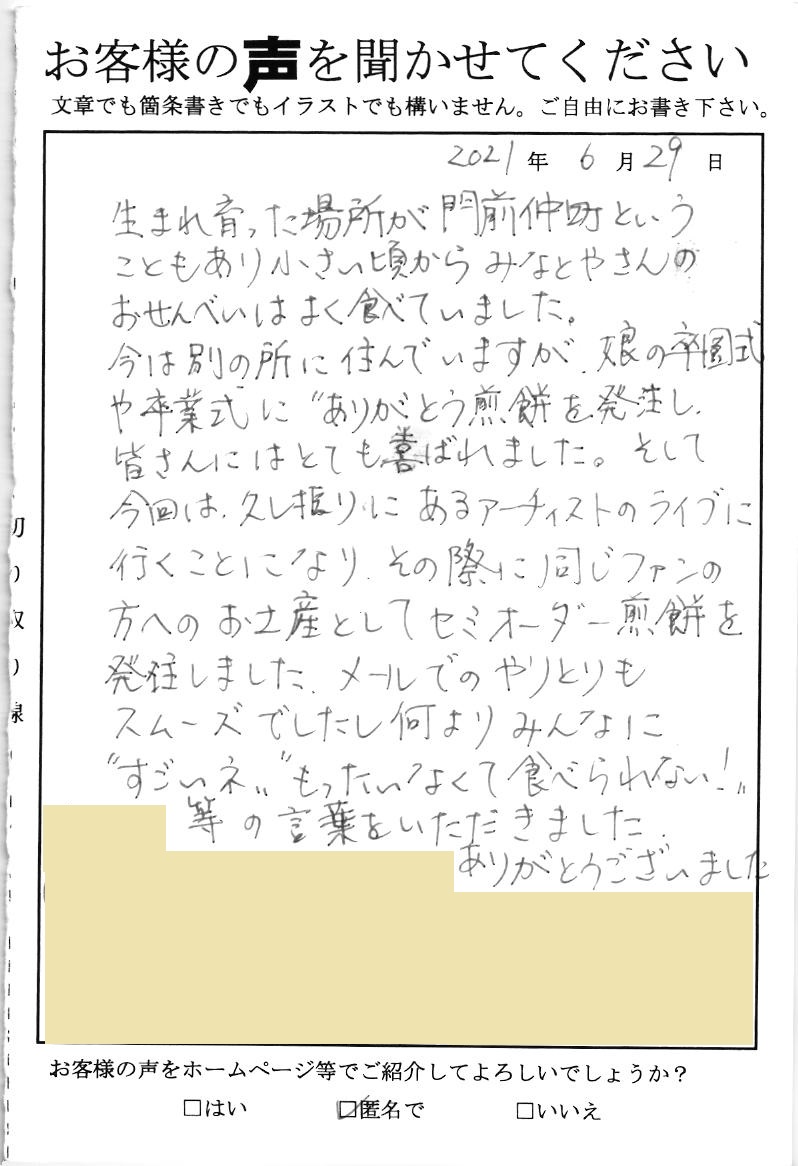 お客様の声を聞かせてください
文章でも箇条書きでもイラストでも構いません。ご自由にお書き下さい。
2021年 6月29日
生まれ育った場所が門前仲町という
こともあり小さい頃からみなとやさんの
おせんべいはよく食べていました。
今は別の所に住んでいますが、娘の卒園式
や卒業式に〝ありがとう煎餅を発注し、
皆さんにはとても喜ばれました。そして
今回は、久し振りにあるアーティストのライブに
行くことになり、その際に同じファンの
方へのお土産としてセミオーダー煎餅を
発注しました、メールでのやりとりも
スムーズでしたし何よりみんなに
〝すごいネ〟〝もったいなくて食べられない!〟
等の言葉をいただきました、
ありがとうございました
切り取り線
お客様の声をホームページ等でご紹介してよろしいでしょうか?
□はい □匿名で □いいえ